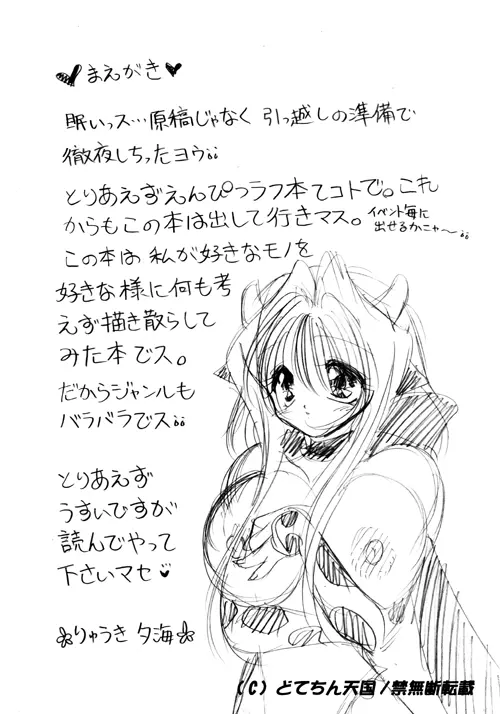 まえがき
眠いっス…原稿じゃなく 引っ越しの準備で
徹夜しちったヨウ;;
とりあえずえんぴつラフ本てコトで。これ
からもこの本は出して行きマス。イベント毎に
出せるかニャ〜;;
この本は 私が好きなモノを
好きな様に何も考
えず描き散らして
みた本でス。
だからジャンルも
バラバラでス;;
とりあえず
うすいですが
読んでやって
下さいマセ
りゅうき 夕海
(C) どてちん天国/禁無断転載